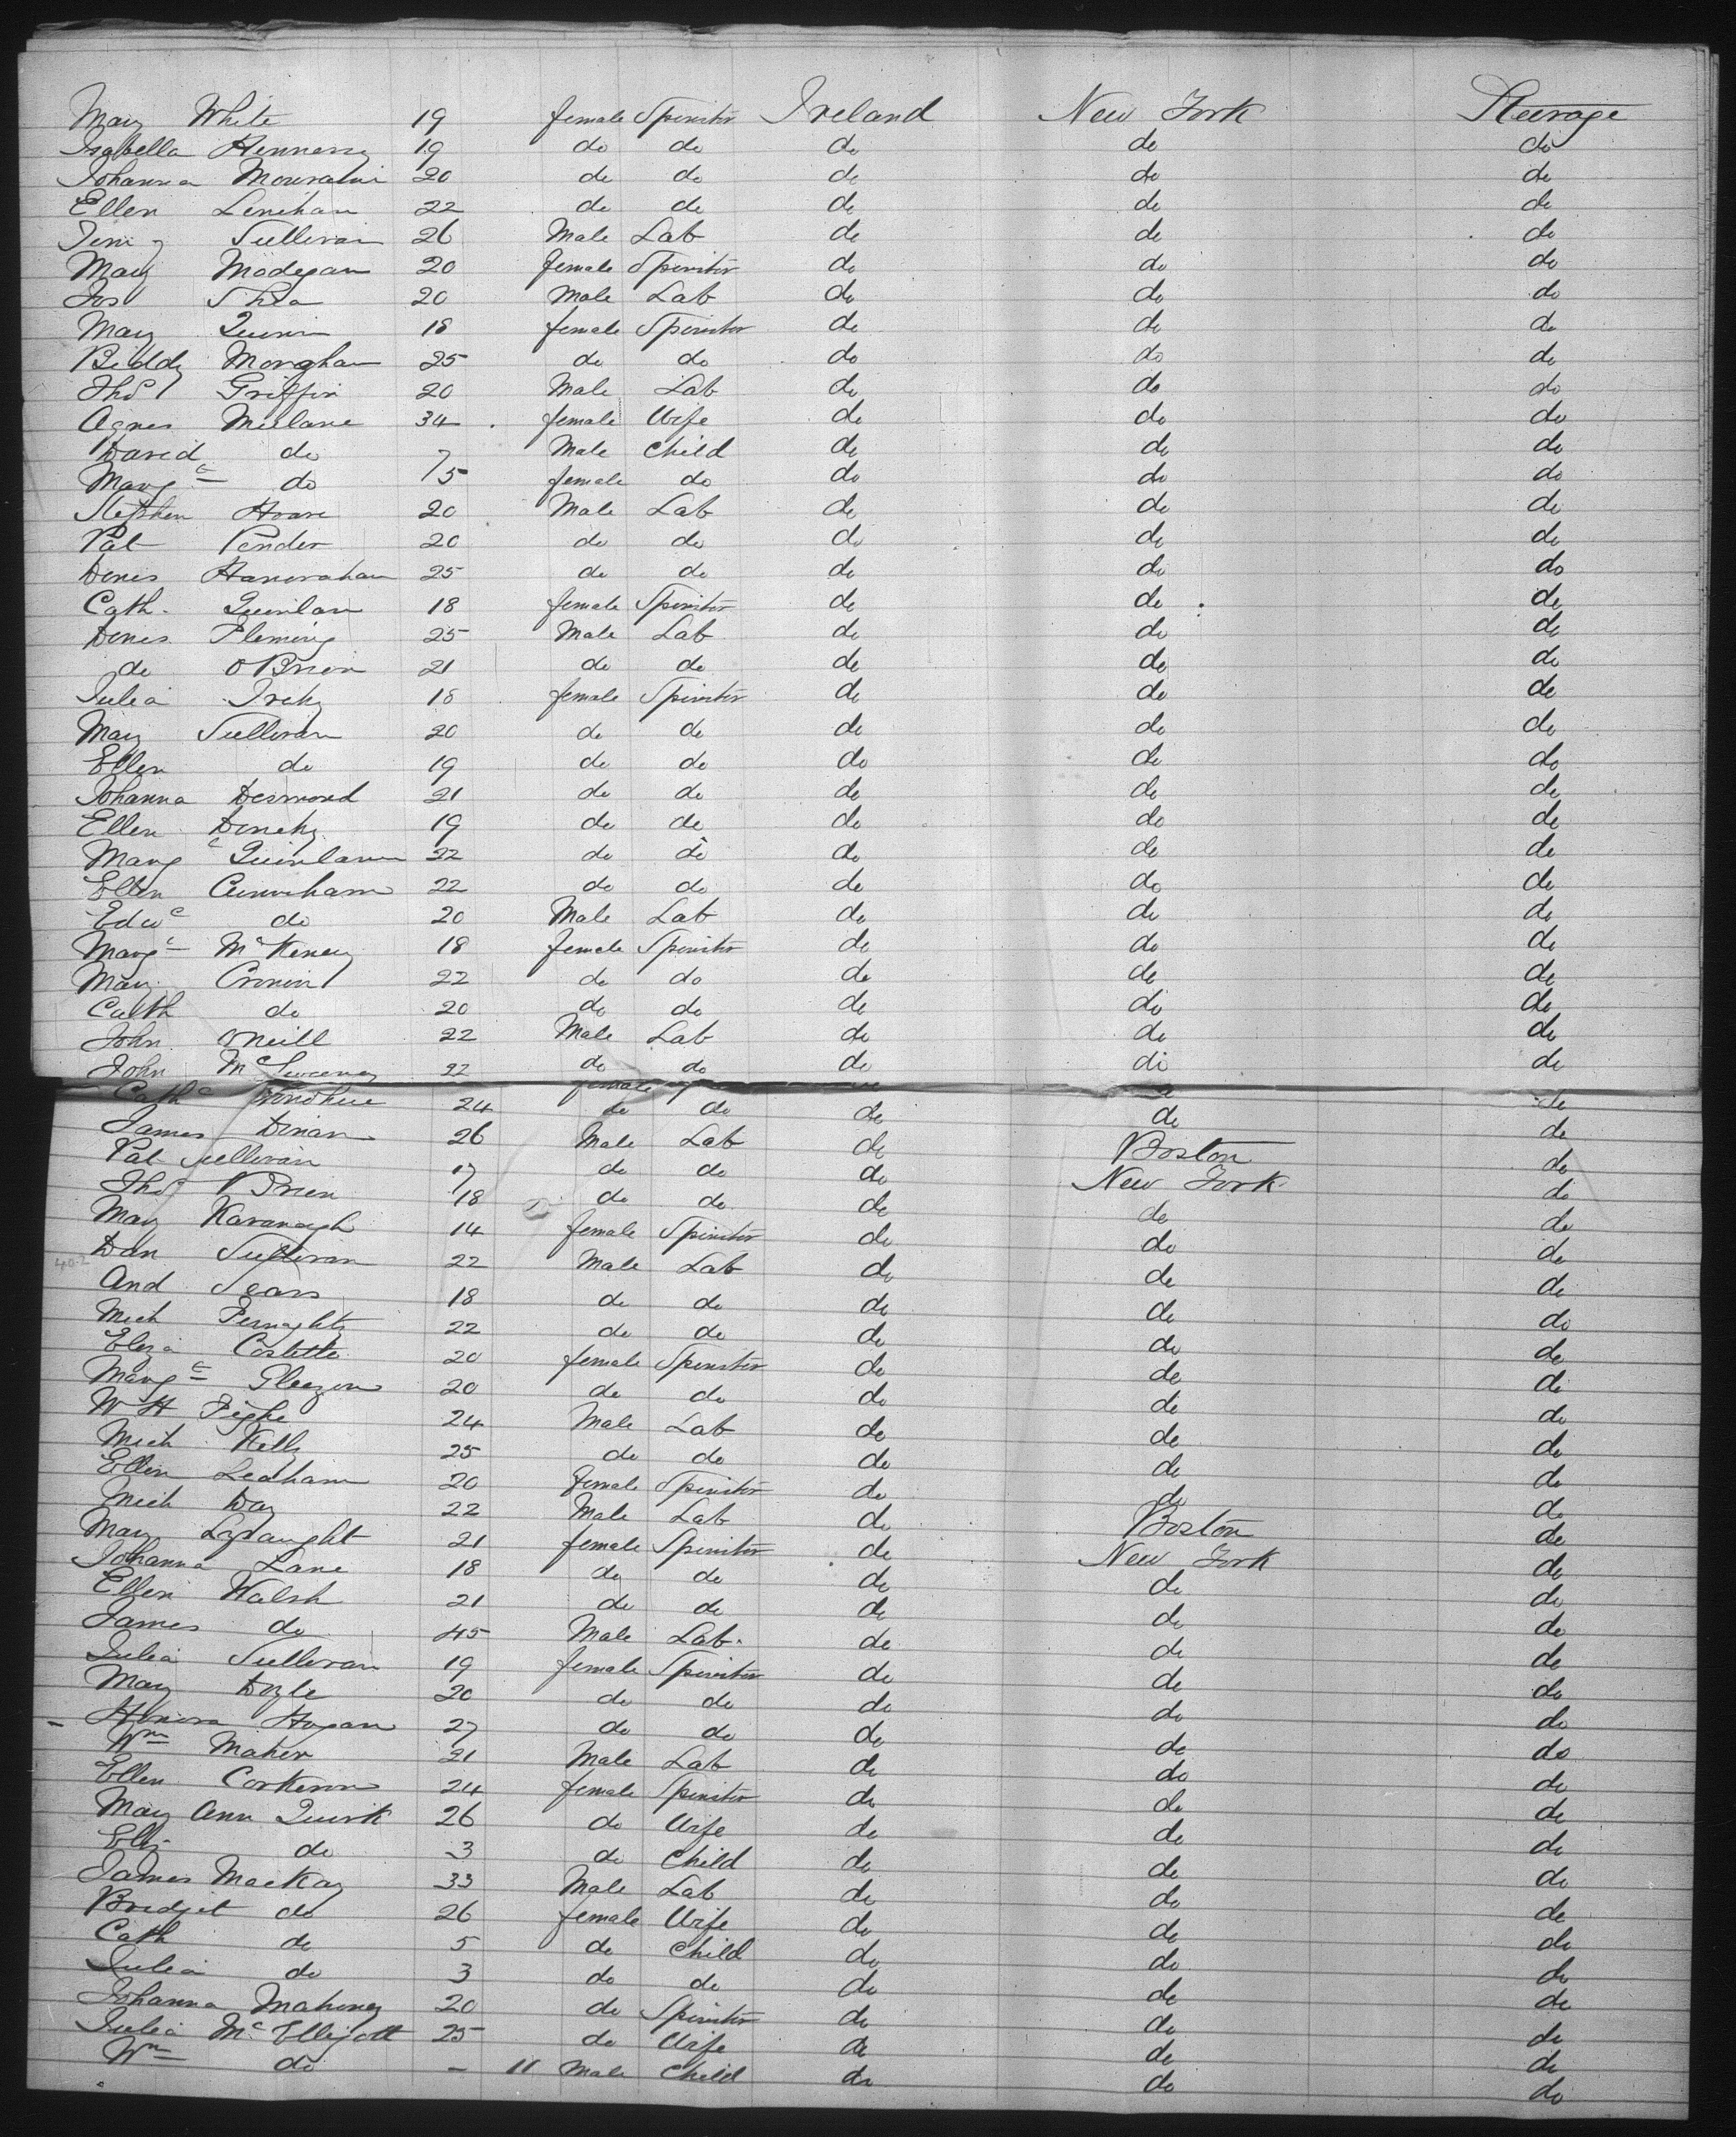 Mary White 19 female Spinster Ireland New York Steerage
Isabella Hennessy 19 do do do do do
Johanna 20 do do do do do
Ellen Lenihan 22 do do do do do
Sullivan 26 Male Lab do do do
Mary Madegan 20 female Spinster do do do
Jos Shea 20 Male Lab do do do
Mary Quinn 18 female Spinster do do do
Biddy Monghan 25 do do do do do
Thos Griffin 20 Male Lab do do do
Agnes Mulane 34 female Wife do do do
David do 7 Male Child do do do
Margt do 5 female do do do do
Stephen Hoare 20 Male Lab do do do
Pat Pender 20 do do do do do
Denis Hanorahan 25 do do do do do
Cath. Quinlan 18 female Spinster do do do
Denis Fleming 25 Male Lab do do do
do OBrien 21 do do do do do
Julia 18 female Spinster do do do
Mary Sullivan 20 do do do do do
Ellen do 19 do do do do do
Johanna Desmond 21 do do do do do
Ellen 19 do do do do do
Margt Quinlan 22 do do do do do
Ellen Cunniham 22 do do do do do
Edwd do 20 Male Lab do do do
Margt McKeney 18 female Spinster do do do
Mary Cronin 22 do do do do do
Cath do 20 do do do do do
John ONeill 22 Male Lab do do do
John McSweeney 22 do do do do do
female
Cathe Donohue 24 do do do do do
James Dinan 26 Male Lab do Boston do
Pat Sullivan 17 do do do New York do
Thos Brien 18 do do do do do
Mary Kavanagh 14 female Spinster do do do
Dan Sullivan 22 Male Lab do do do
And Sears 18 do do do do do
Mich 22 do do do do do
Eliza Costette 20 female Spinster do do do
Margt Gleezon 20 do do do do do
W H Tighe 24 Male Lab do do do
Mich Kelly 25 do do do do do
Ellen Leaham 20 female Spinster do do do
Mich Day 22 Male Lab do Boston do
Mary 21 female Spinster do New York do
Johanna Lane 18 do do do do do
Ellen Walsh 21 do do do do do
James do 45 Male Lab. do do do
Julia Sullivan 19 female Spinster do do do
Mary Doyle 20 do do do do do
Honora Hogan 27 do do do do do
Wm Maher 21 Male Lab do do do
Ellen Corkeron 24 female Spinster do do do
Mary Ann Quirk 26 do Wife do do do
do 3 do Child do do do
James MacKay 33 Male Lab do do do
Bridjet do 26 female Wife do do do
Cath do 5 do Child do do do
Julia do 3 do do do do do
Johanna Mahoney 20 do Spinster do do do
Julia McElligott 25 do Wife do do do
Wm do - 11 Male Child do do do